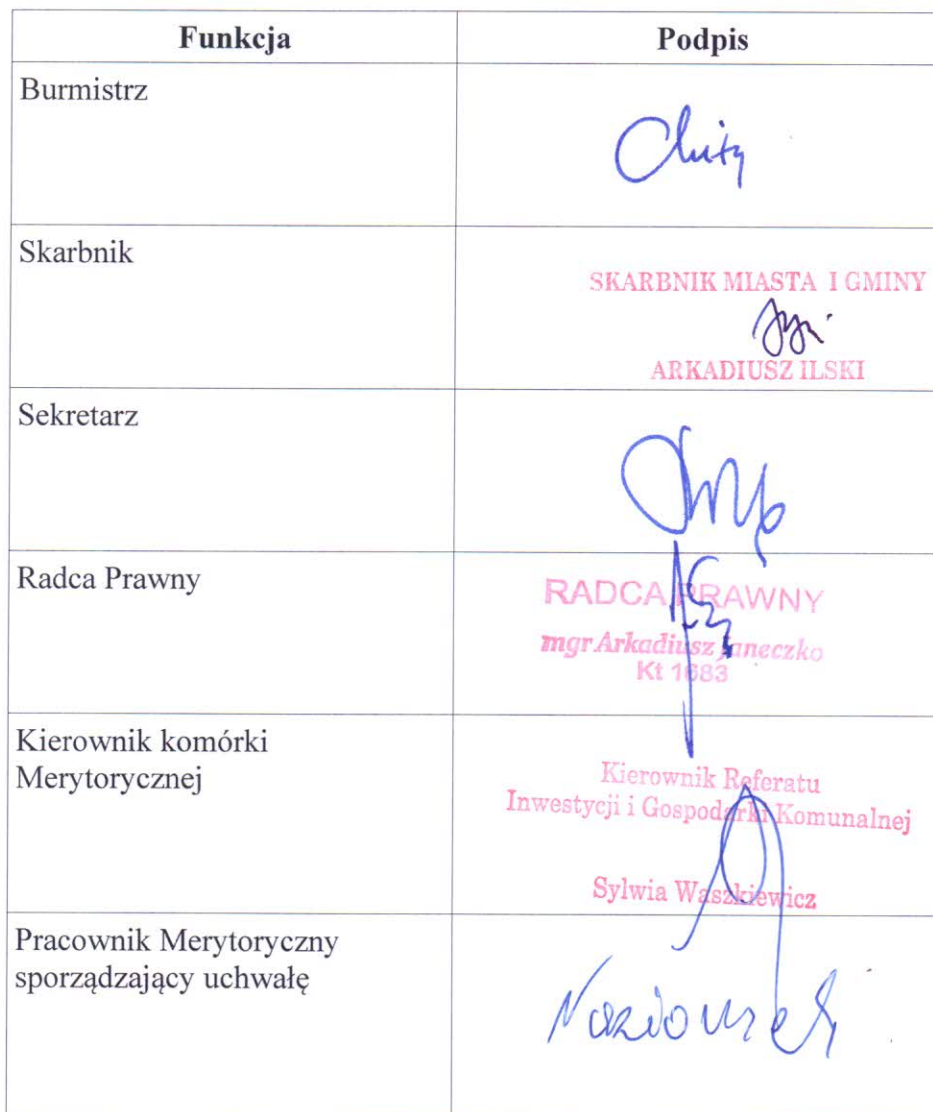 Funkcja Podpis
Burmistrz
Skarbnik
SKARBNIK MIASTA I GMINY
ARKADIUSZ ILSKI
Sekretarz
Radca Prawny
RADCA PRAWNY
mgr Arkadiusz Janeczko
Kt 1683
Kierownik komórki
Merytorycznej
Kierownik Referatu
Inwestycji i Gospodarki Komunalnej
Sylwia Waszkiewicz
Pracownik Merytoryczny
sporządzający uchwałę